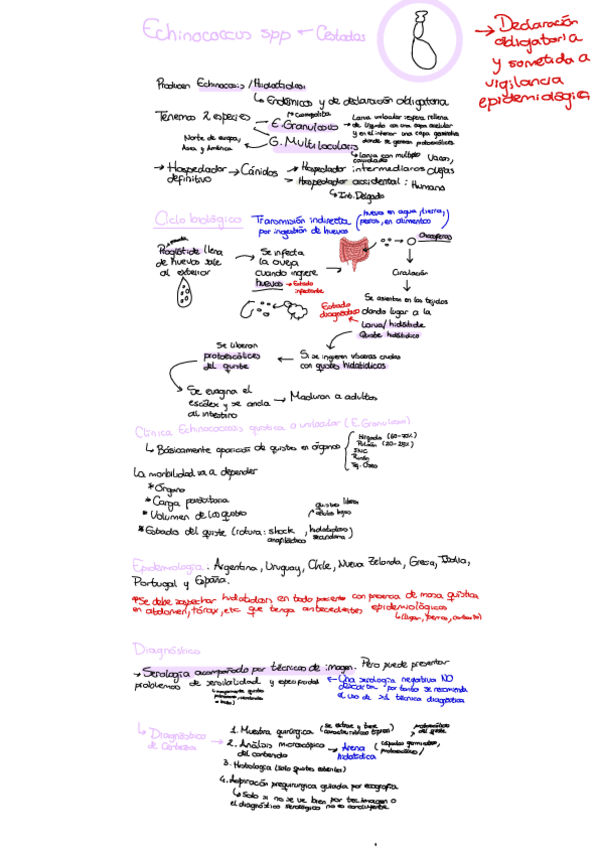 Echinococcus spp ← Cestodos
→ Declaración
obligatoria
y sometida a
vigilancia
epidemiológica
Producen Echinococosis/Hidatidosis
↳ Endémicos y de declaración obligatoria
Tenemos 2 especies
→ cosmopolita
E. Granulosus
→ de líquido con una capa acelular
y en el interior una capa germinativa
donde se generan protoescólices
G. Multilocularis
Norte de europa,
Asia y América
↳ larva con multiples
→ Hospedador definitivo → Cánidos
→ Hospedador intermediarios: Vacas, ovejas
→ Hospedador accidental: Humano
↳ Int. Delgado
Ciclo biológico
Transmisión indirecta (huevos en agua, tierra,
por ingestión de huevos perros, en alimentos)
Proglótide llena
de huevos sale
al exterior
→ Se infecta
la oveja
cuando ingiere
huevos → Estado
infectante
Oncosferas
Circulación
Se asientan en los tejidos
dando lugar a la
Larva/hidátide
Quiste hidatídico
Estado
diagnóstico
Si se ingieren vísceras crudas
con quistes hidatídicos
Se liberan
protoescólices
del quiste
Se evagina el
escólex y se ancla
al intestino
→ Maduran a adultos
Clínica Echinococosis quística o unilocular (E. Granulosus)
↳ Básicamente aparición de quistes en órganos
Hígado (60-70%)
Pulmón (20-25%)
SNC
Riñón
Tej. Óseo
La morbilidad va a depender
* Órgano
* Carga parasitaria
* Volumen de los quistes
* Estado del quiste (rotura: shock anafiláctico, hidatidosis secundaria)
Epidemiología: Argentina, Uruguay, Chile, Nueva Zelanda, Grecia, Italia,
Portugal y España.
*Se debe sospechar hidatidosis en todo paciente con presencia de masa quística
en abdomen, tórax, etc que tenga antecedentes epidemiológicos
Diagnóstico
→ Serología acompañado por técnicas de imagen. Pero puede presentar
problemas de sensibilidad y especificidad ← Una serología negativa NO
descarta por tanto se recomienda
el uso de >1 técnica diagnóstica
↳ Diagnóstico
de Certeza
1. Muestra quirúrgica (se extrae y tiene
características típicas)
2. Análisis microscópico
del contenido
→ Arena
hidatídica
3. Histología (solo quistes estériles)
4. Aspiración prequirúrgica guiada por ecografía
↳ Solo si no se ve bien por tec. imagen o
el diagnóstico serológico no es concluyente